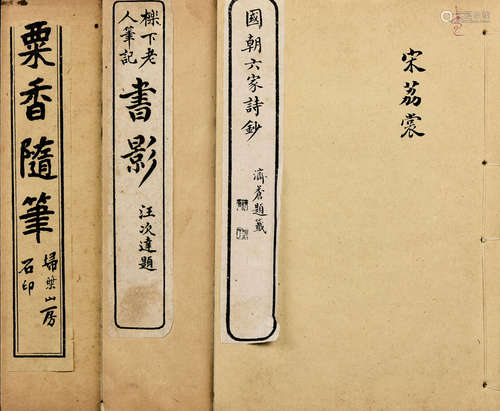 宋荔裳
國朝六家詩鈔
濟蒼題籤
櫟下老
人筆記
書影
汪次達題
粟香隨筆
掃葉山房
石印